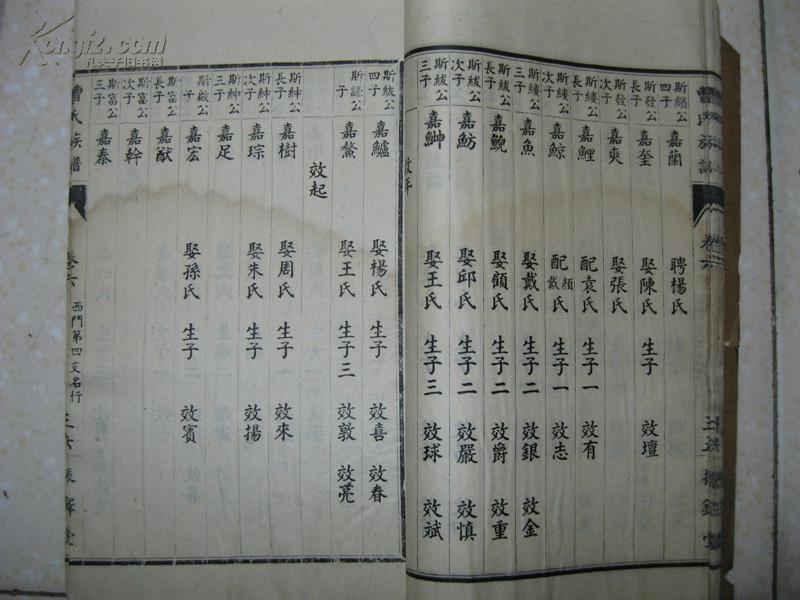 曹氏族譜
卷六
斯纘公四子 嘉蘭 聘楊氏
斯發公長子 嘉奎 娶陳氏 生子 效壇
斯發公次子 嘉爽 娶張氏
斯纓公長子 嘉鯉 配袁氏 生子一 效有
斯纓公次子 嘉鯨 配顏戴氏 生子一 效志
斯纓公三子 嘉魚 娶戴氏 生子二 效銀 效金
斯紱公長子 嘉鯢 娶顧氏 生子二 效爵 效重
斯紱公次子 嘉魴 娶邱氏 生子二 效嚴 效慎
斯紱公三子 嘉鯓 娶王氏 生子三 效球 效斌
效平
斯紱公四子 嘉鱸 娶楊氏 生子 效喜 效春
斯謹公子 嘉鰲 娶王氏 生子三 效敦 效亮
效起
斯紳公長子 嘉樹 娶周氏 生子一 效來
斯紳公次子 嘉琮 娶朱氏 生子 效揚
斯紳公三子 嘉足
斯啟公子 嘉宏 娶孫氏 生子二 效賓
斯富公長子 嘉猷
斯富公次子 嘉幹
斯富公三子 嘉泰
曹氏族譜
卷六
西門第四支名行
Kongfz.com
孔夫子旧书网